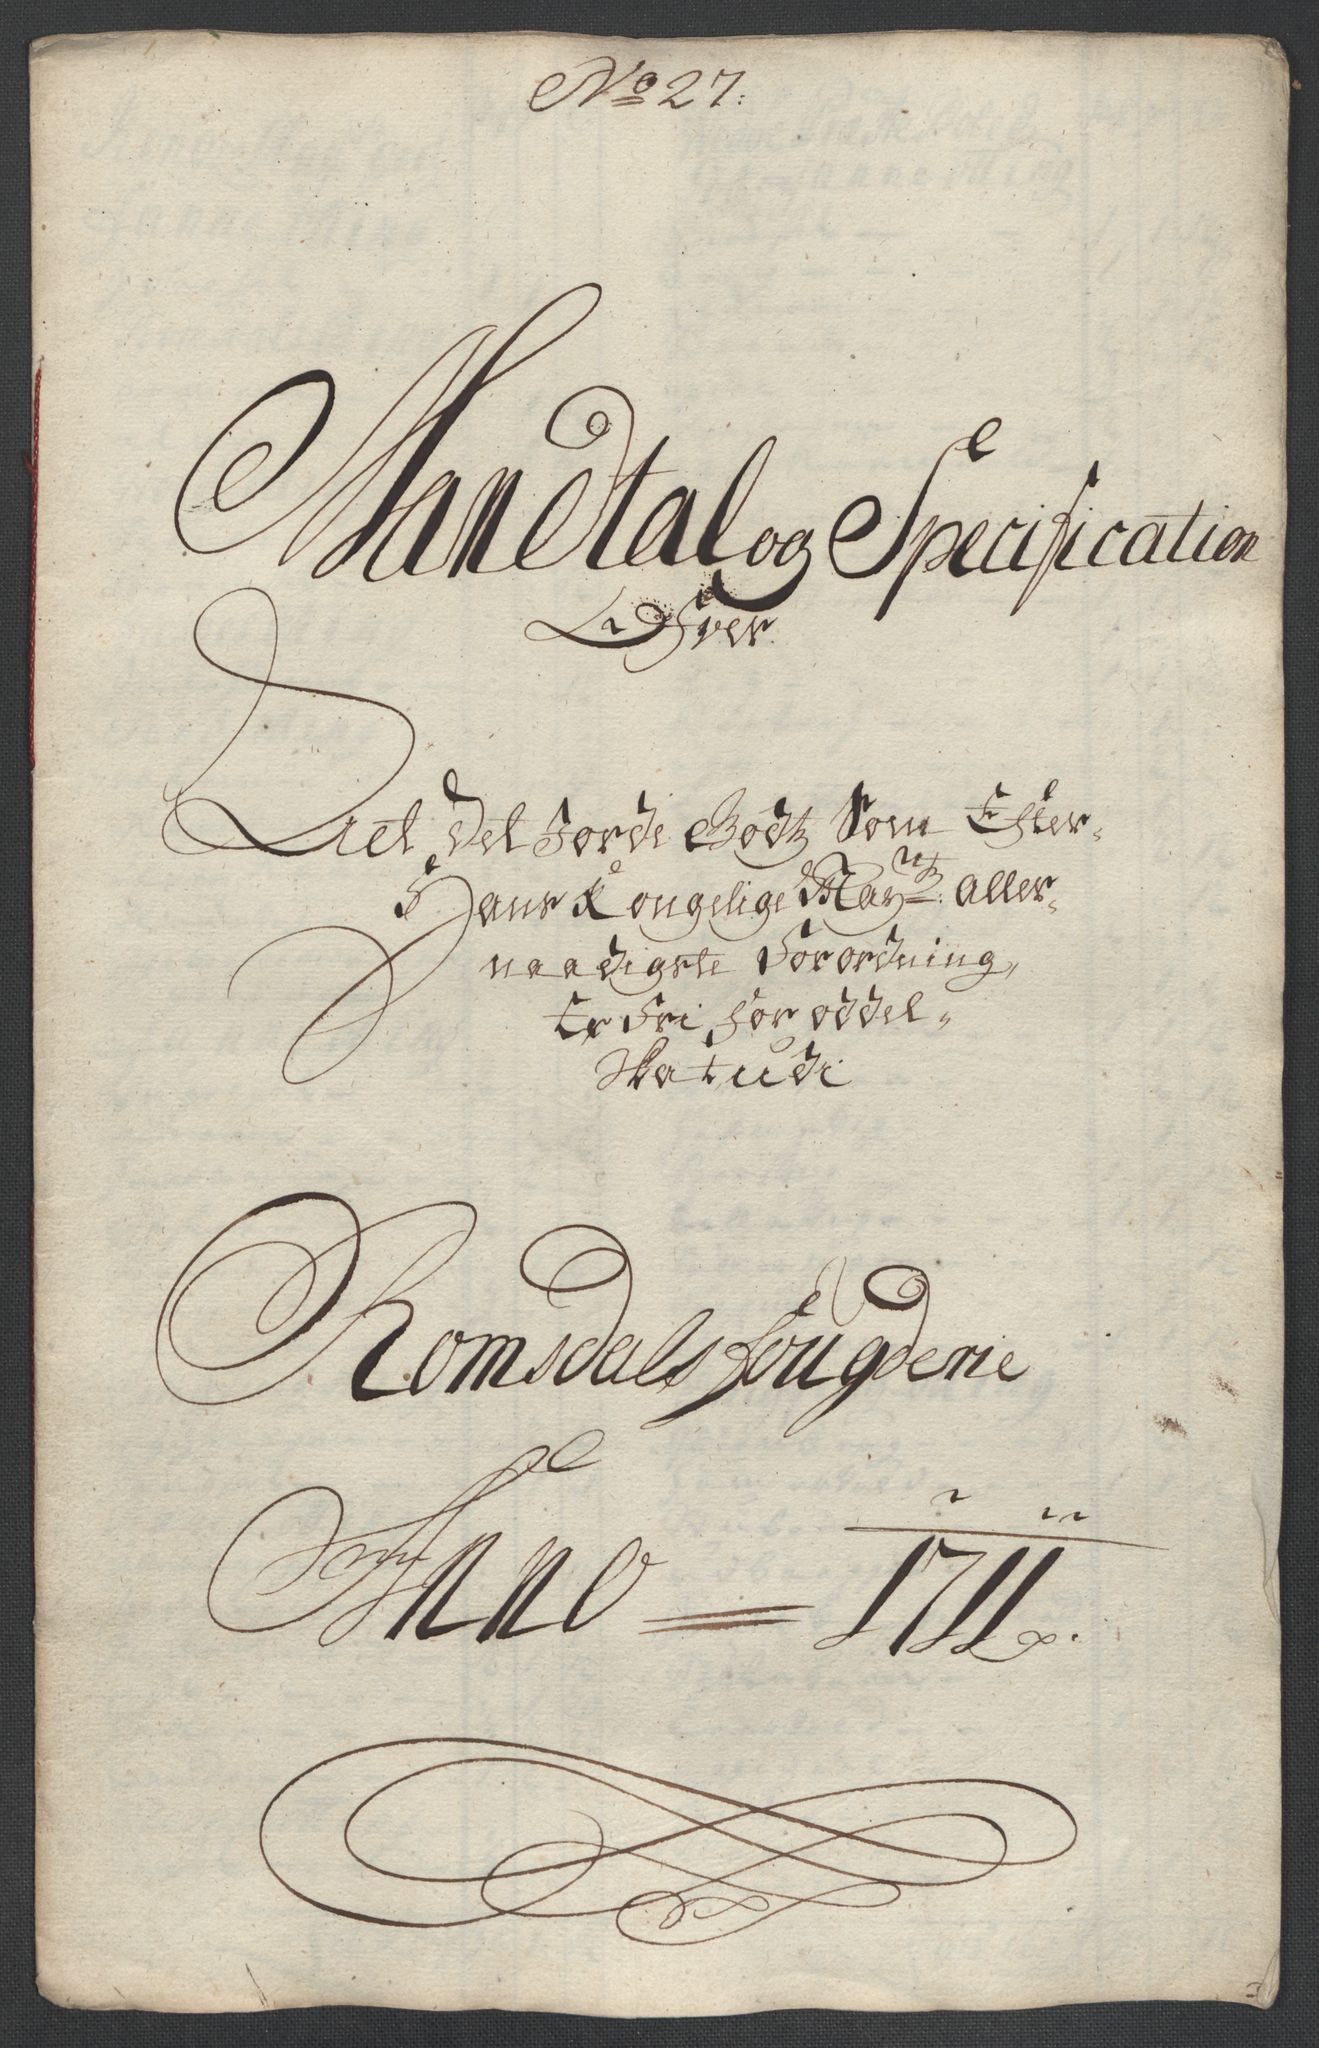 No 27:
Mandtal og Specification
Ofver
Alt det Jorde Godtz Som Efter
Hans Kongelige Maytz: aller-
naadigste Forordning,
Er Fri for oddel-
Skat udi
Romsdals fougderie
Anno = 1711.